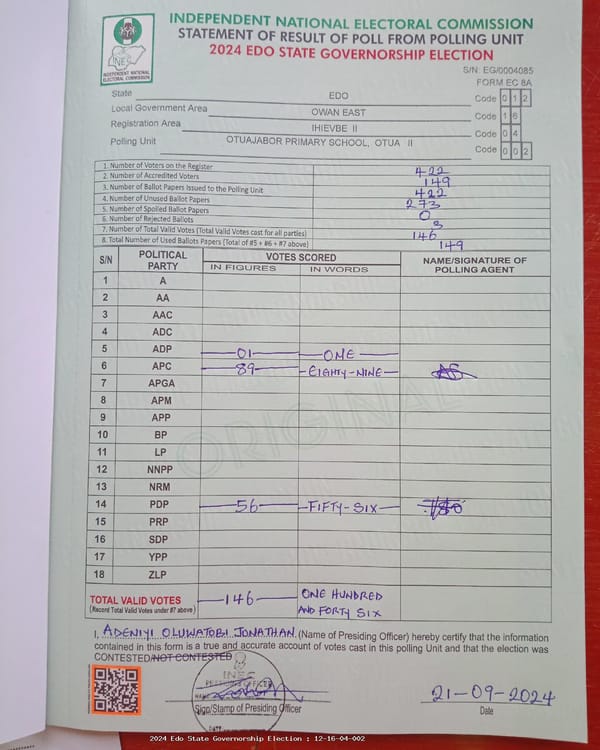 INDEPENDENT NATIONAL ELECTORAL COMMISSION
STATEMENT OF RESULT OF POLL FROM POLLING UNIT
2024 EDO STATE GOVERNORSHIP ELECTION
INEC
INDEPENDENT NATIONAL
ELECTORAL COMMISSION
S/N: EG/0004085
FORM EC 8A
State EDO Code 0 1 2
Local Government Area OWAN EAST Code 1 6
Registration Area IHIEVBE II Code 0 4
Polling Unit OTUAJABOR PRIMARY SCHOOL, OTUA II Code 0 0 2
1. Number of Voters on the Register 422
2. Number of Accredited Voters 149
3. Number of Ballot Papers Issued to the Polling Unit 422
4. Number of Unused Ballot Papers 273
5. Number of Spoiled Ballot Papers 0
6. Number of Rejected Ballots 3
7. Number of Total Valid Votes (Total Valid Votes cast for all parties) 146
8. Total Number of Used Ballots Papers (Total of #5 + #6 + #7 above) 149
S/N POLITICAL PARTY VOTES SCORED NAME/SIGNATURE OF POLLING AGENT
IN FIGURES IN WORDS
1 A
2 AA
3 AAC
4 ADC
5 ADP 01 ONE
6 APC 89 EIGHTY-NINE
7 APGA
8 APM
9 APP
10 BP
11 LP
12 NNPP
13 NRM
14 PDP 56 FIFTY-SIX
15 PRP
16 SDP
17 YPP
18 ZLP
ORIGINAL
TOTAL VALID VOTES 146 ONE HUNDRED
(Record Total Valid Votes under #7 above) AND FORTY SIX
I, ADENIYI OLUWATOBI JONATHAN (Name of Presiding Officer) hereby certify that the information
contained in this form is a true and accurate account of votes cast in this polling Unit and that the election was
CONTESTED/NOT CONTESTED
INEC
PRESIDING OFFICER
21-09-2024
Sign/Stamp of Presiding Officer Date
2024 Edo State Governorship Election : 12-16-04-002